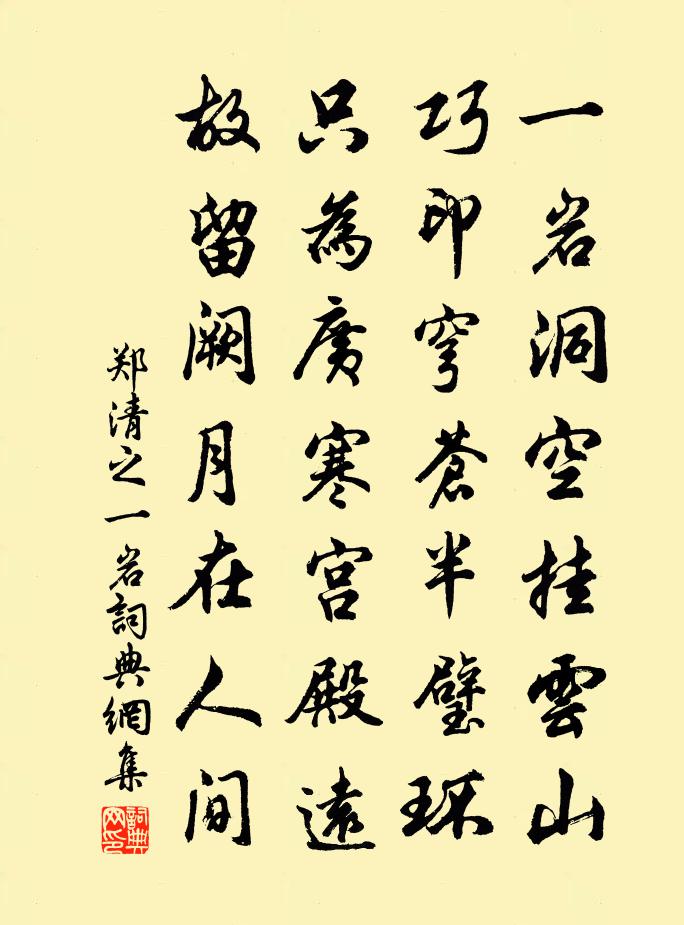 一岩洞空挂雲山
巧印穹蒼半璧环
只為廣寒宫殿遠
故留阙月在人间
郑清之一岩詞典網集
詞典网印